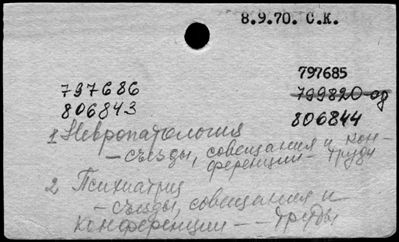 8.9.70. С.К.
797685
797686
799820-од
806843
806844
1 Невропатология
– съезды, совещания и кон-
ференции – труды
2 Психиатрия
– съезды, совещания и
конференции – труды